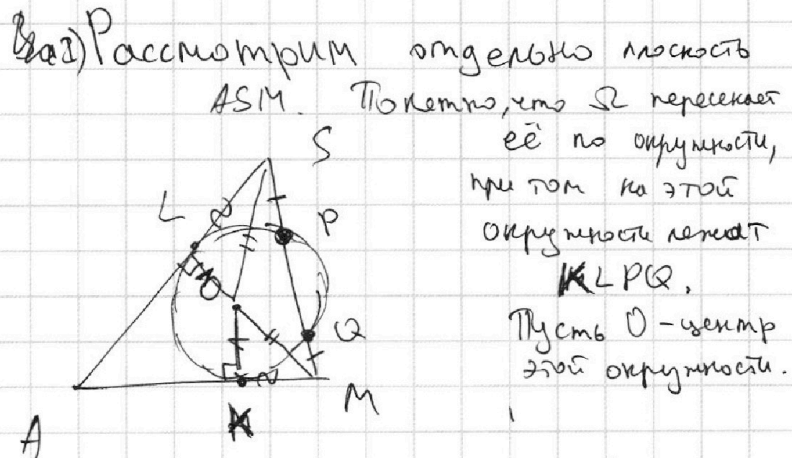 Рассмотрим отдельно плоскость
ASM. Понятно, что Ω пересекает
её по окружности,
при том на этой
окружности лежат
KLPQ.
Пусть O - центр
этой окружности.
S
L
P
O
Q
A
K
M